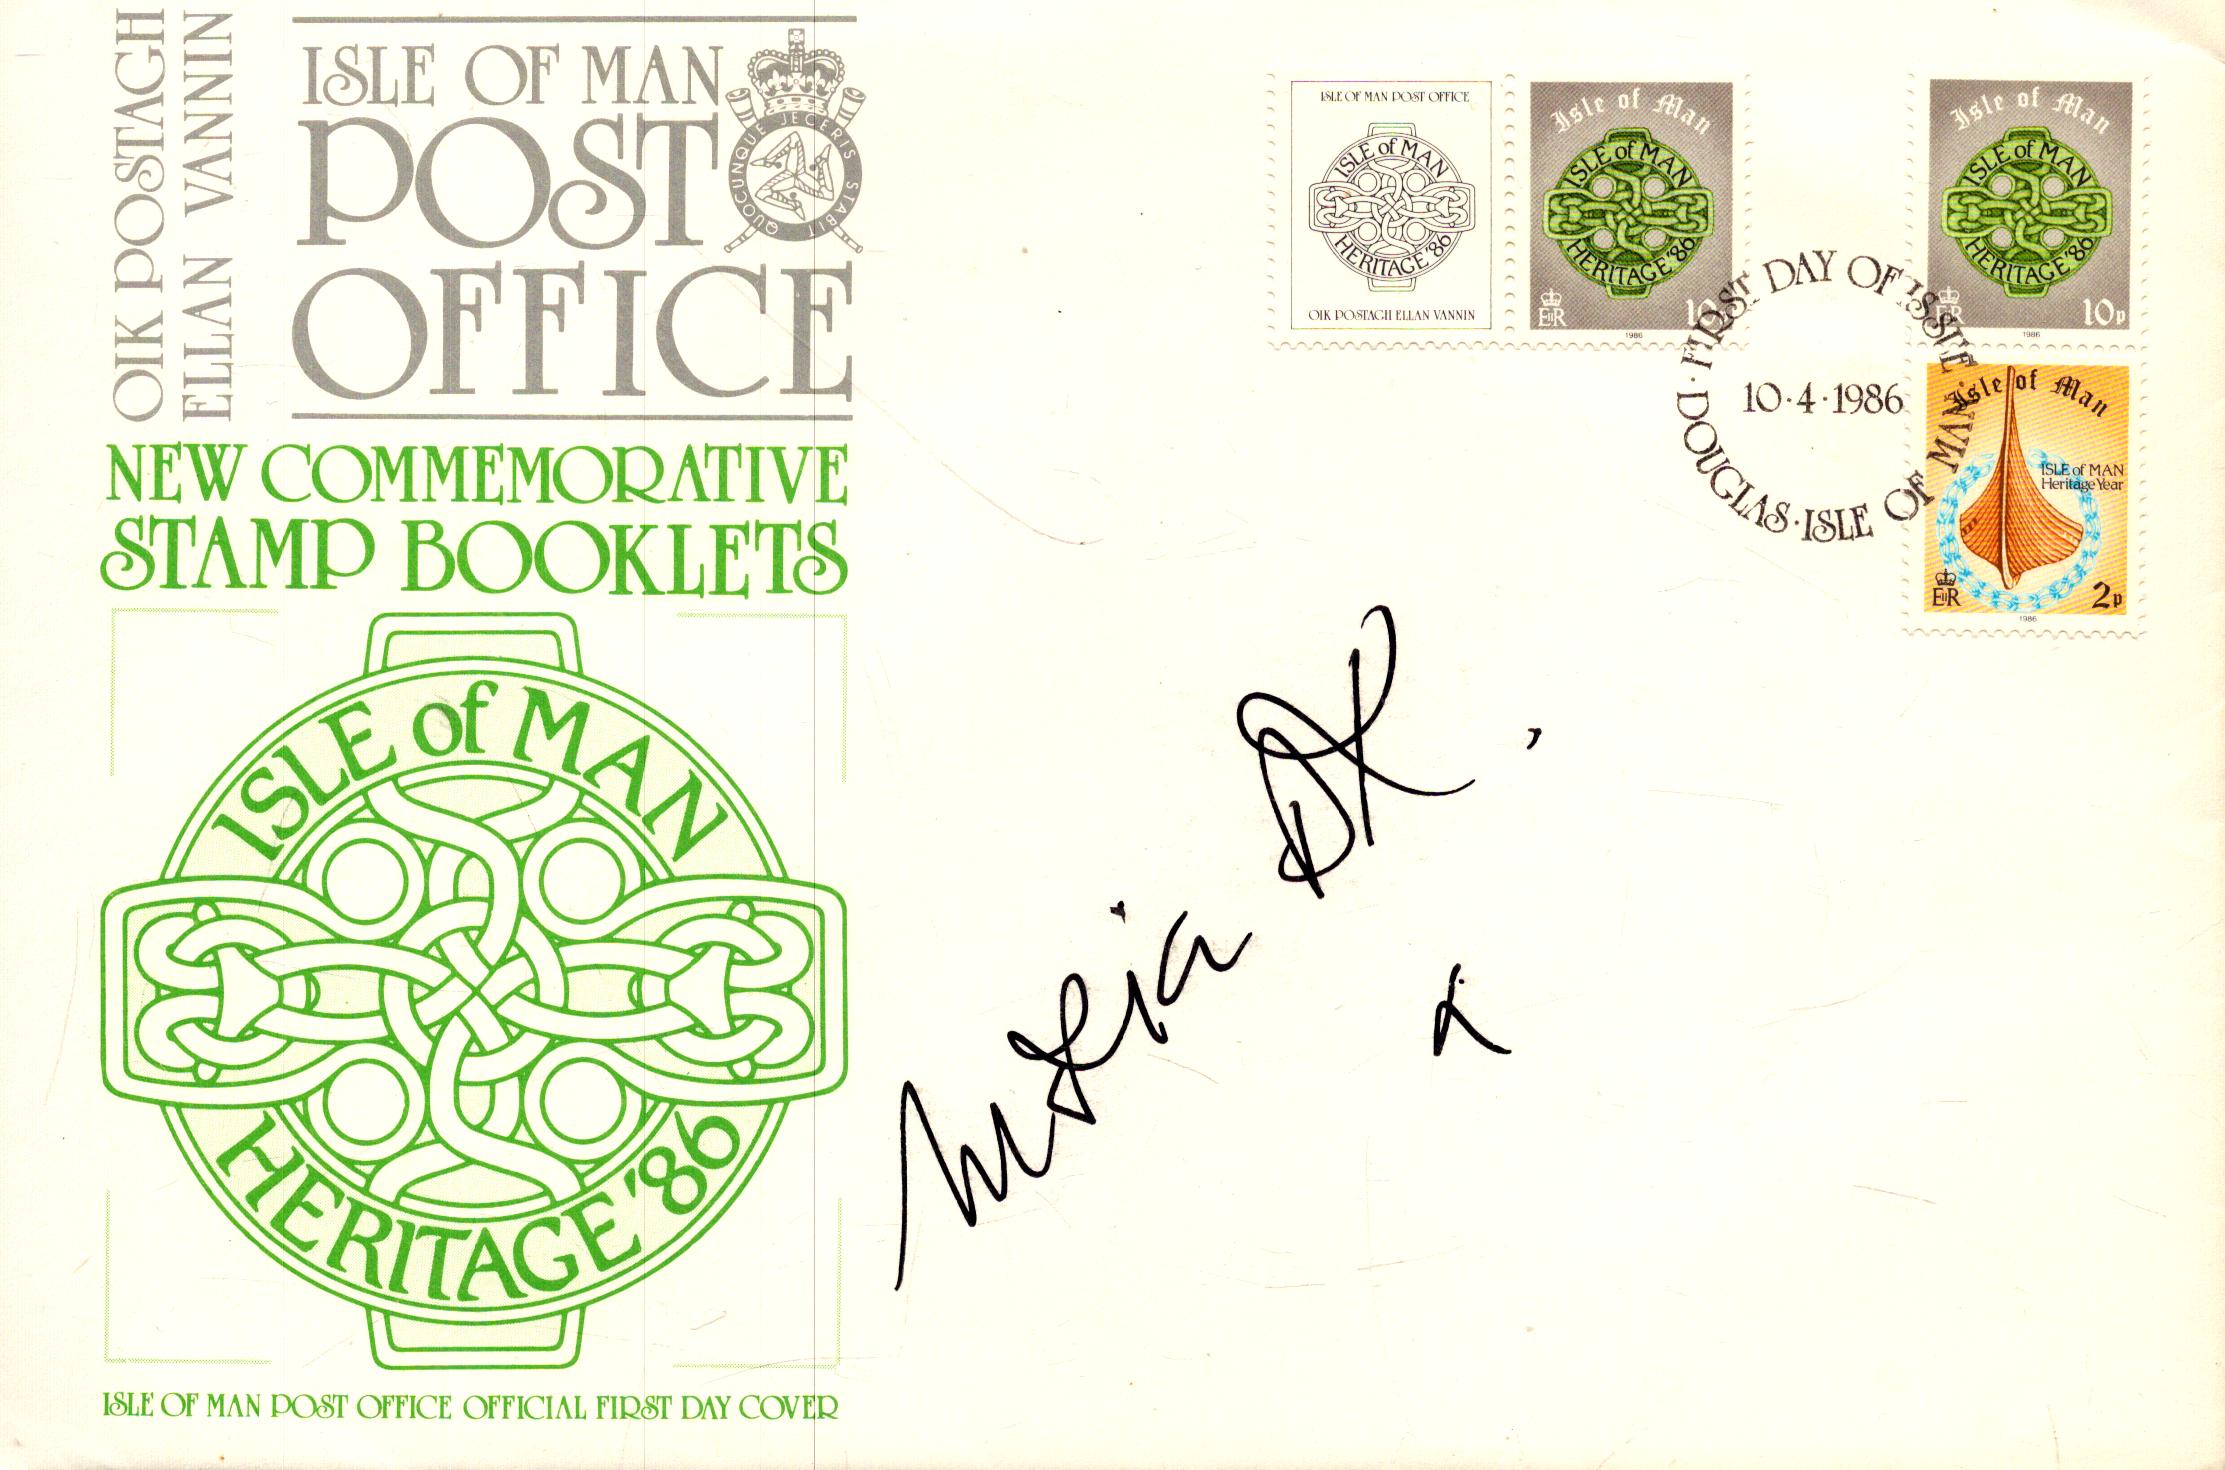 OIK POSTAGH
ELLAN VANNIN
ISLE OF MAN
POST
OFFICE
QUOCUNQUE JECERIS STABIT
NEW COMMEMORATIVE
STAMP BOOKLETS
ISLE of MAN
HERITAGE '86
ISLE OF MAN POST OFFICE OFFICIAL FIRST DAY COVER
ISLE OF MAN POST OFFICE
ISLE of MAN
HERITAGE '86
OIK POSTAGH ELLAN VANNIN
Isle of Man
ISLE of MAN
HERITAGE '86
EIIR
10p
1986
Isle of Man
ISLE of MAN
HERITAGE '86
EIIR
10p
1986
FIRST DAY OF ISSUE
10·4·1986
DOUGLAS · ISLE OF MAN
Isle of Man
ISLE of MAN
Heritage Year
EIIR
2p
1986